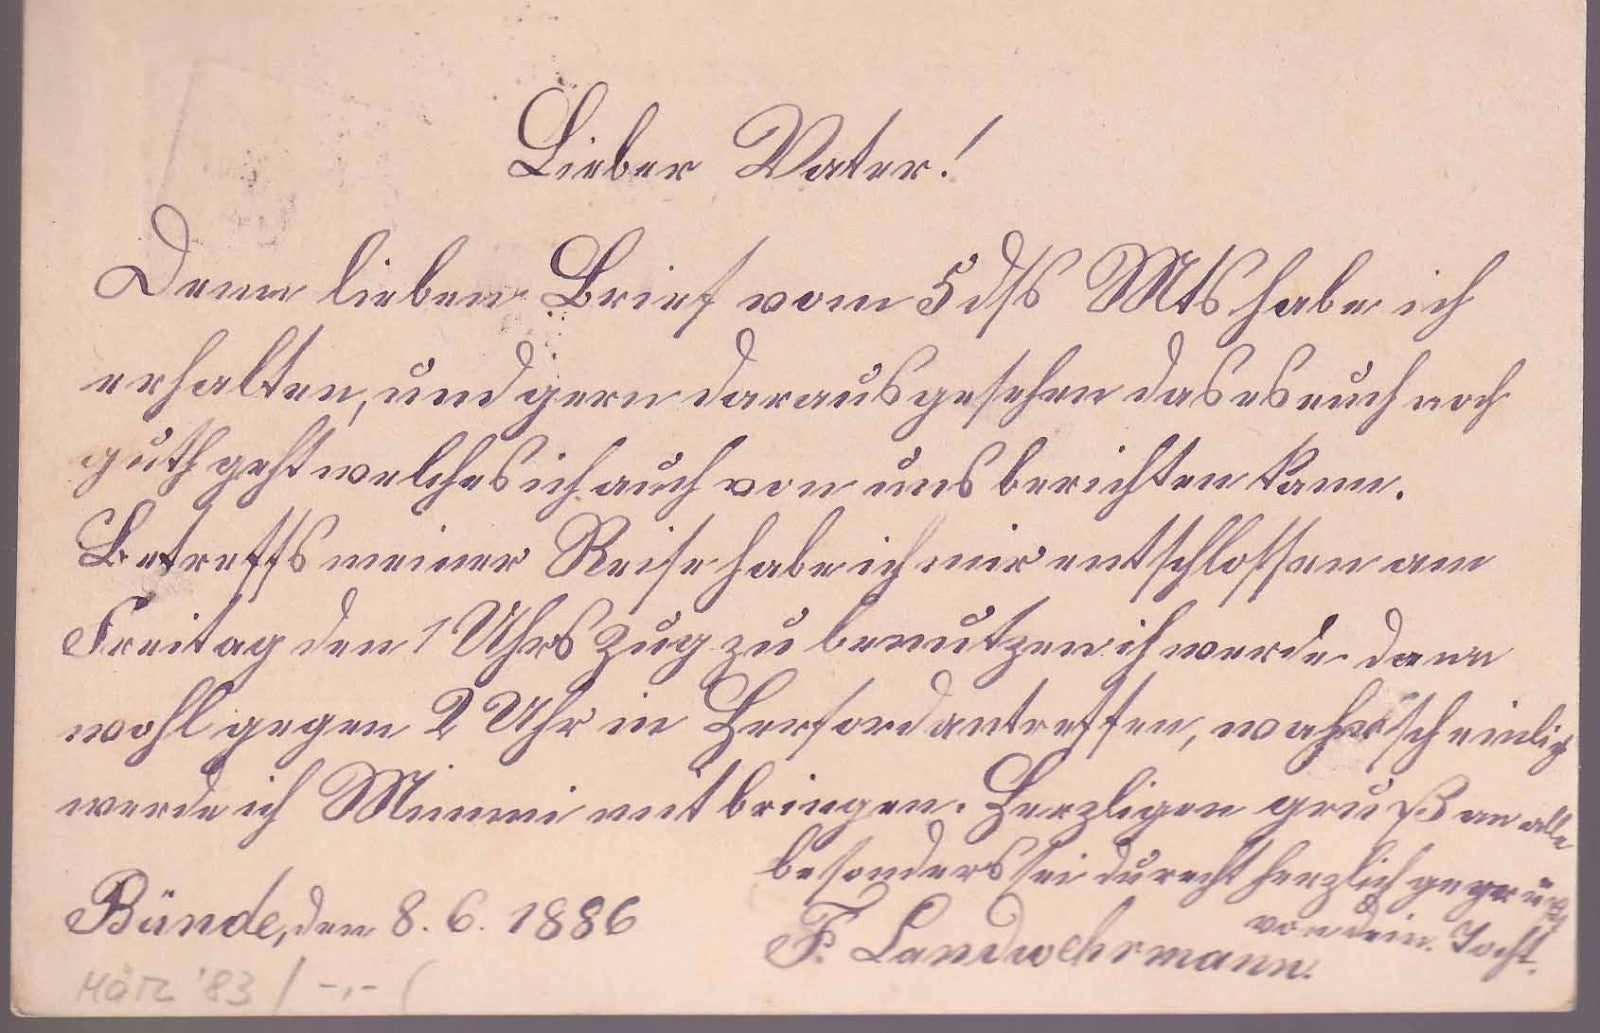 Lieber Vater!
Denn lieben Brief vom 5 dss Mts habe ich
erhalten, und gern daraus gesehen das es euch noch
guth geht welches ich auch von uns berichten kann.
Betreffs meiner Reise habe ich mir entschlossen am
Freitag den 1 Uhrs Zug zu benutzen ich werde dann
wohl gegen 2 Uhr in Herford antreffen, wahrscheinlig
werde ich Minni mitbringen. Herzligen gruß an alle
besonders sei du recht herzlich gegrüßt
von dein. Tocht.
Bünde, den 8. 6. 1886
F. Landwehrmann.
März '83 / -.- (